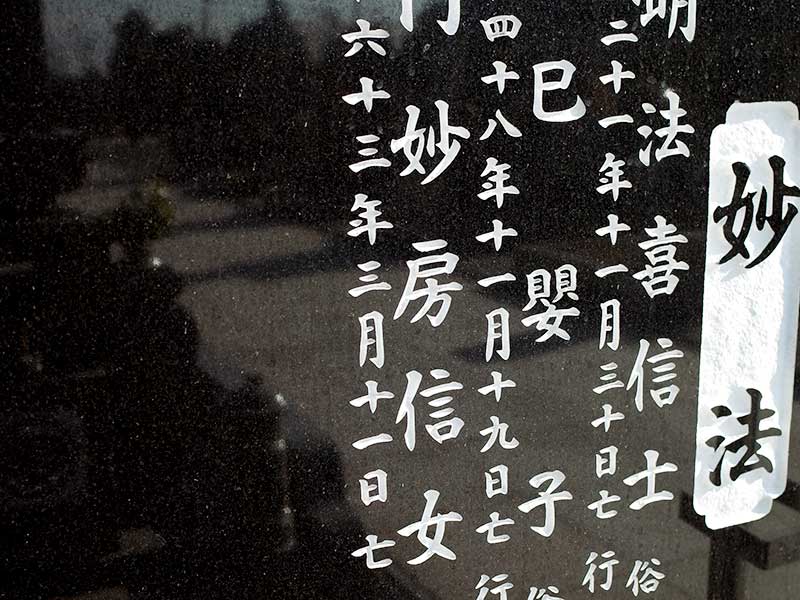 妙法
明法喜信士 俗
二十一年十一月三十日七 行
巳嬰子 俗
四十八年十一月十九日七 行
妙房信女
六十三年三月十一日七